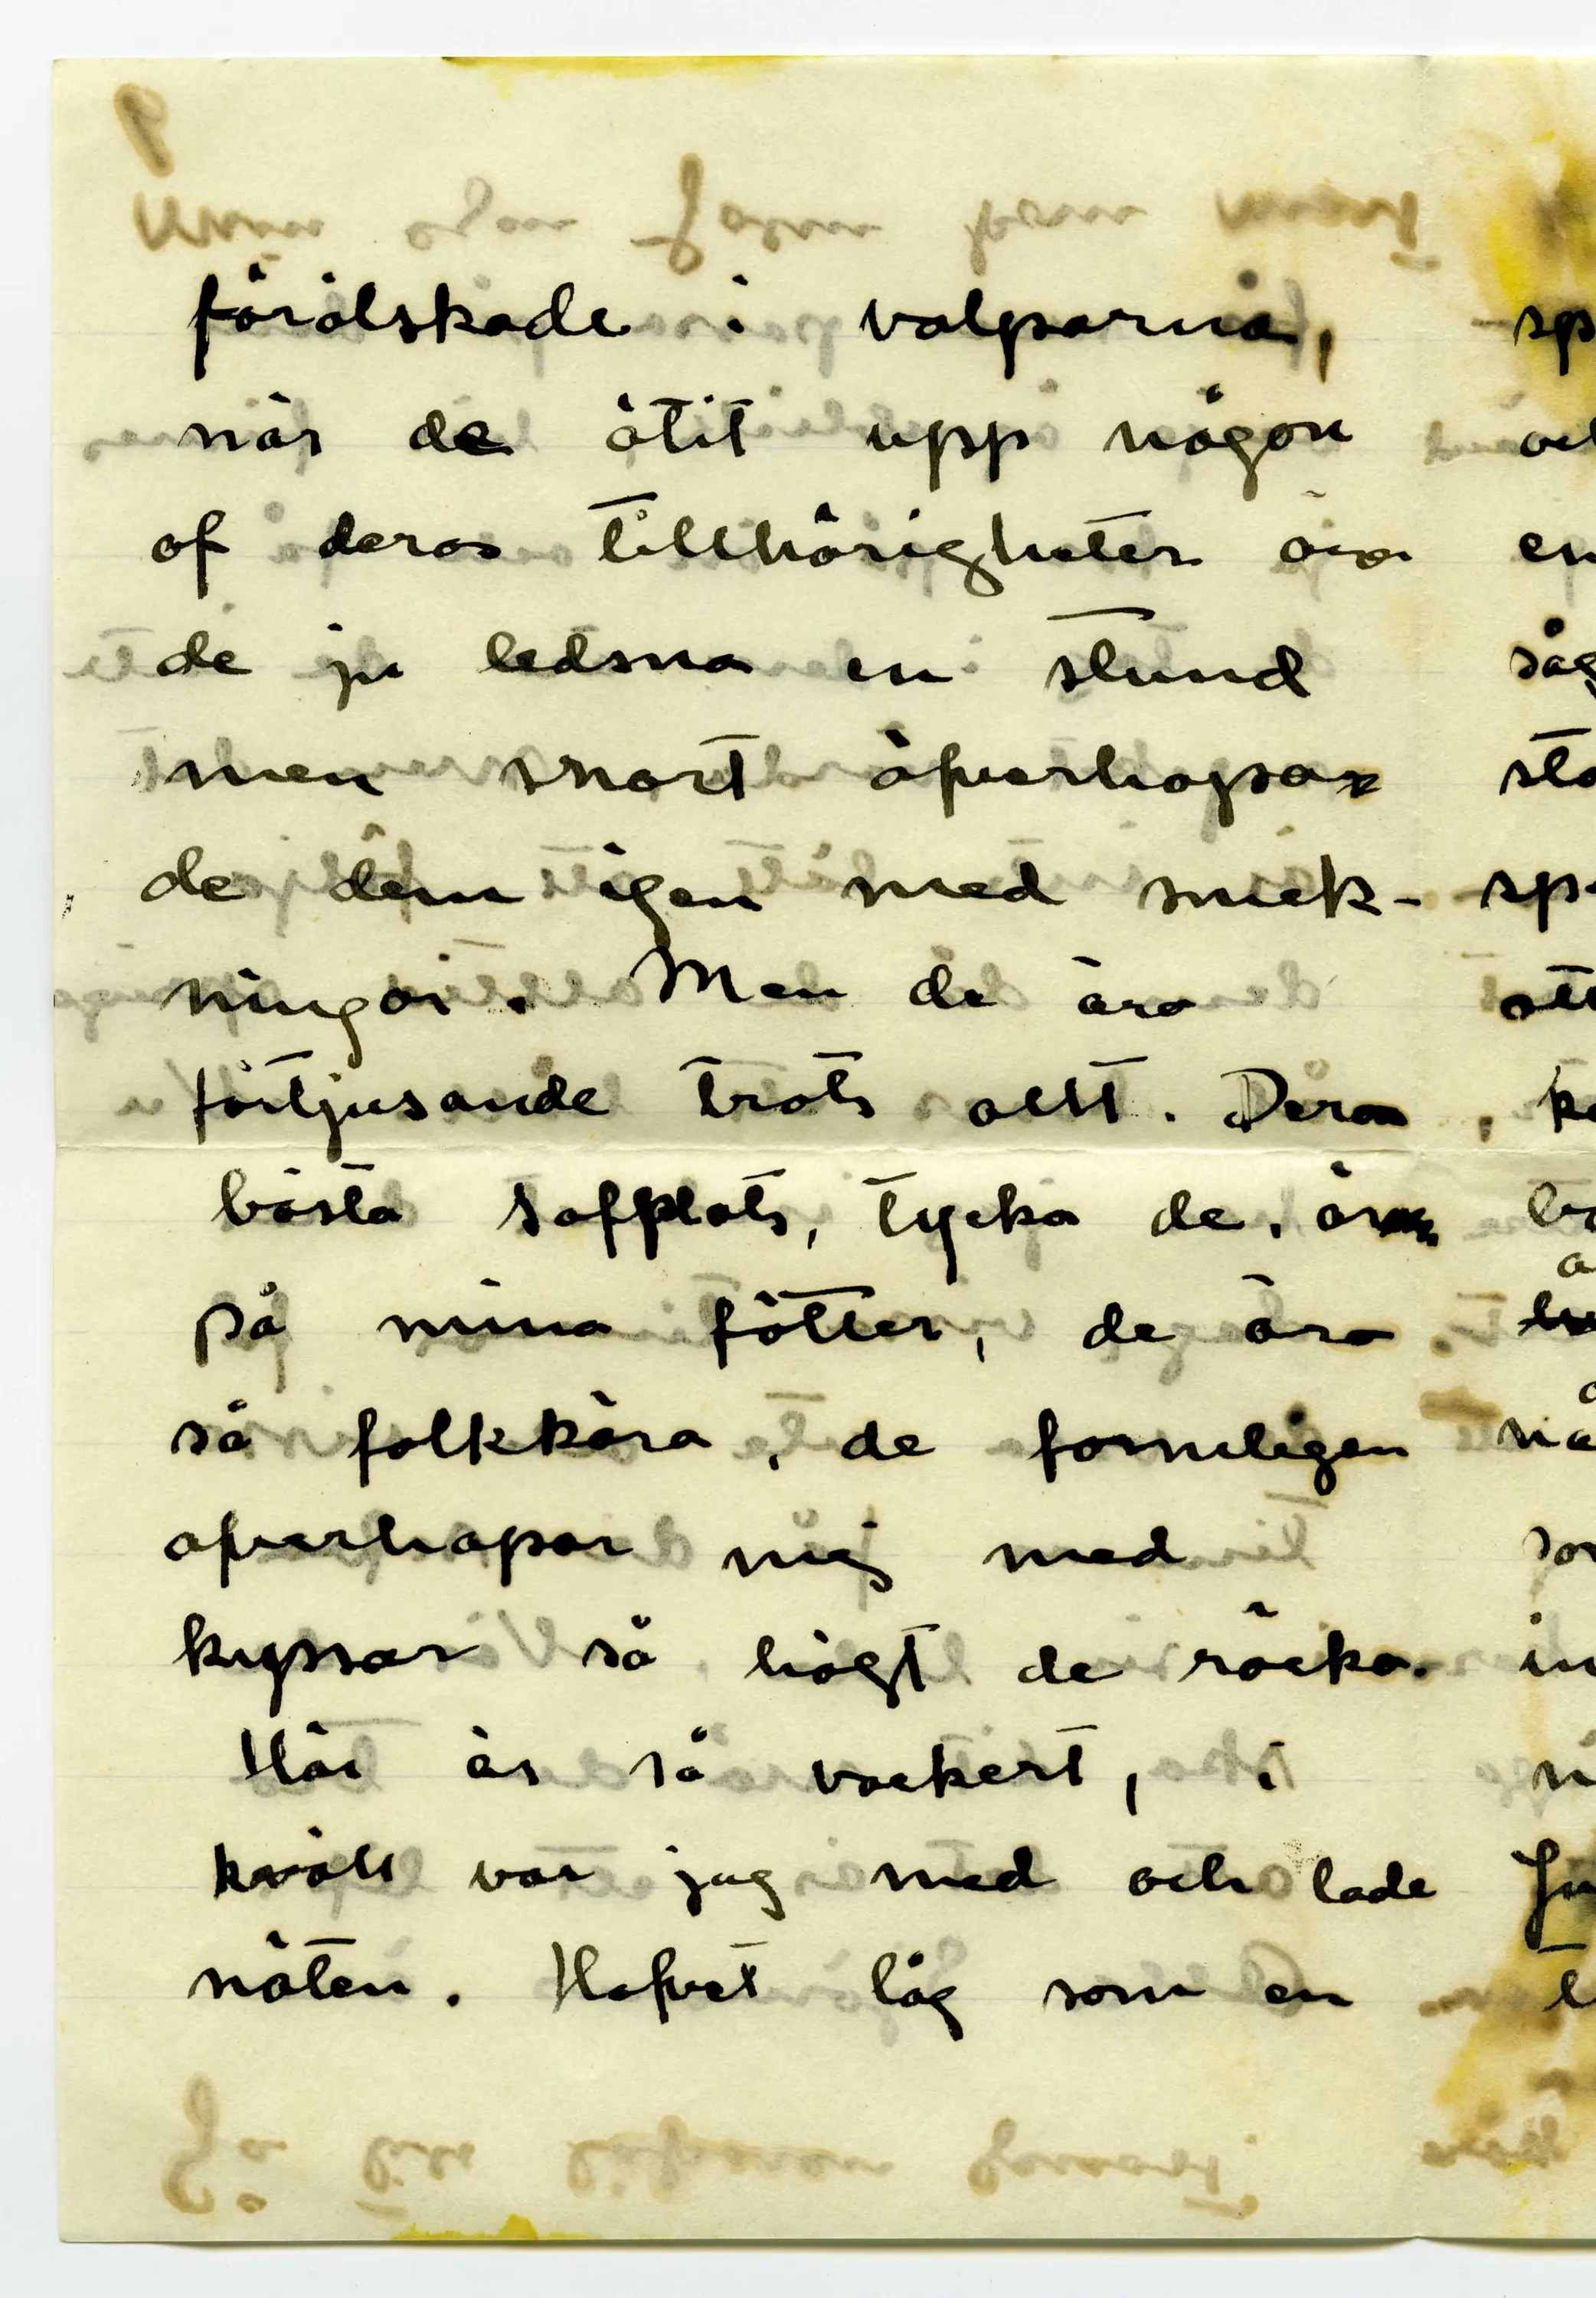 förälskade i valparna,
när de ätit upp någon
af deras tillhörigheter äro
de ju ledsna en stund
men snart öfverhopa
de dem igen med smek-
ningar. Men de äro
förtjusande trots allt. Deras
bästa sofplats, tycka de, är
på mina fötter, de äro
så folkkära, de formligen
öfverhopar mig med
kyssar så högt de räcka.
Här är så vackert, i
kväll var jag med och lade
näten. Hafvet låg som en